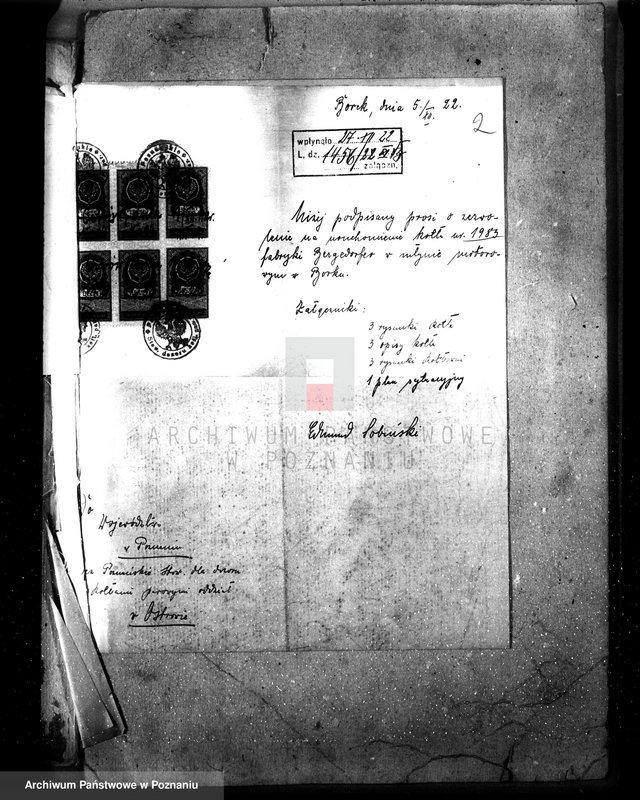 Borek, dnia 5./XII. 22.
2
wpłynęło 27 12 22
L. dz. 1456/22
załączn.
Niżej podpisany prosi o zezwo-
lenie na uruchomienie kotła nr. 1983
fabryki Bergedorfer w młynie motoro-
wym w Borku.
Załączniki:
3 rysunki kotła
3 opisy kotła
3 rysunki kotłowni
1 plan sytuacyjny
Edmund Sobiński
ARCHIWUM PAŃSTWOWE
W POZNANIU
Do
Województwa
w Poznaniu
na Poznańskie Stow. dla dozoru
kotłami parowymi oddział
w Ostrowie
Archiwum Państwowe w Poznaniu